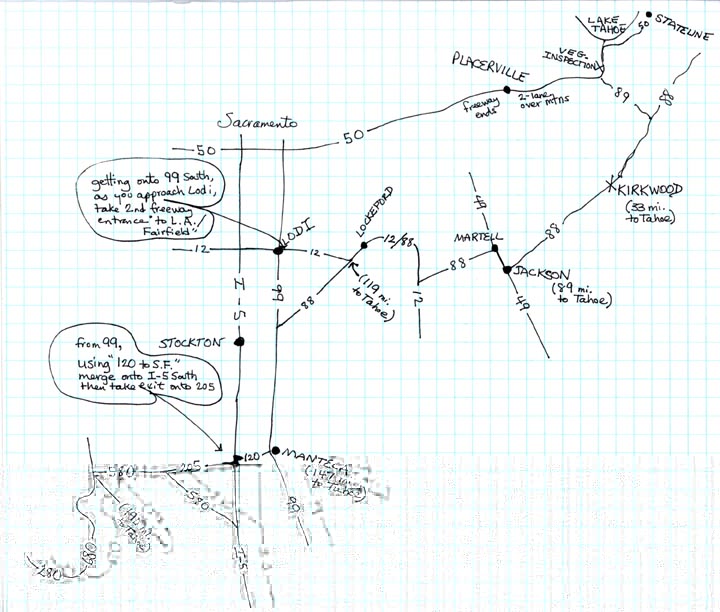 LAKE
TAHOE
50
STATELINE
VEG.
INSPECTION
PLACERVILLE
freeway
ends
2-lane
over mtns
89
88
Sacramento
50
50
getting onto 99 South,
as you approach Lodi,
take 2nd freeway
entrance "to L.A./
Fairfield"
KIRKWOOD
(33 mi.
to Tahoe)
49
LOCKEFORD
LODI
12
12
12/88
MARTELL
88
88
JACKSON
(89 mi.
to Tahoe)
(119 mi.
to Tahoe)
I-5
99
88
12
49
from 99,
using "120 to S.F."
merge onto I-5 South
then take exit onto 205
STOCKTON
120
MANTECA
to Tahoe)
580
205
580
99
to Tahoe)
680
280
I-5